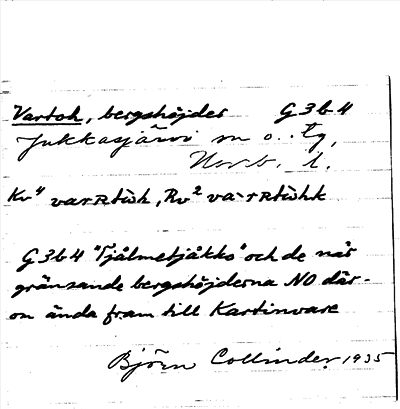 Vartoh, bergshöjder G3b4
Jukkasjärvi sn o. tg,
Norrb. l.
Kv⁴ varʀtùh, Rv² va·rʀtùhk
G3b4 "Tjålmetjåkko" och de när-
gränsande bergshöjderna NO där-
om ända fram till Kartinvare
Björn Collinder 1935